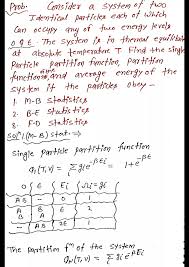 Prob: Consider a System of two
Identical particles each of which
Can occupy any of two energy levels
0 & E. The System is in thermal equilibrium
at absolute temperature T Find the single
Particle partition function, Partition
function, and average energy of the
System if the particles obey —
1. M-B Statistics
2. B-E Statistics
3. F-D Statistics
Solⁿ (M-B) stat ⇒
Single particle partition function
Q₁(T,V) = Σ gi e^-βEi = 1+e^-βE
0 E Ei Ωi = gi
AB - 0 1
A B E 2
B A
- AB 2E 1
The partition fⁿ of the system
QN(T,V) = Σ gi e^-βEi